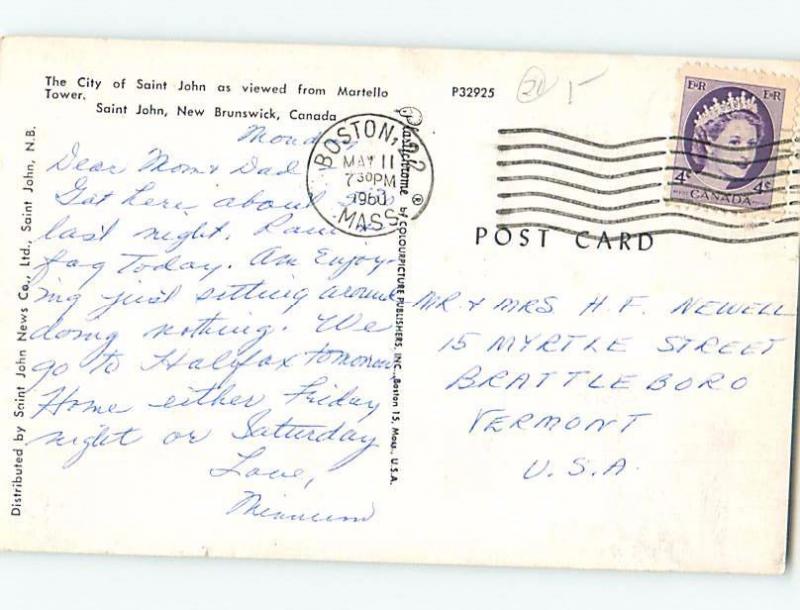 The City of Saint John as viewed from Martello
Tower.
Saint John, New Brunswick, Canada
P32925
Distributed by Saint John News Co., Ltd., Saint John, N.B.
Plastichrome ® by COLOURPICTURE PUBLISHERS, INC., Boston 15, Mass., U.S.A.
BOSTON, P2
MAY 11
7 30PM
1960
MASS.
E II R E II R
4c 4c
CANADA
POST CARD
Monday
Dear Mom & Dad
Got here about six
last night. Rain &
fog today. Am enjoy-
ing just sitting around
doing nothing. We
go to Halifax tomorrow
Home either Friday
night or Saturday
Love,
MR. & MRS. H. F. NEWELL
15 MYRTLE STREET
BRATTLEBORO
VERMONT
U.S.A.